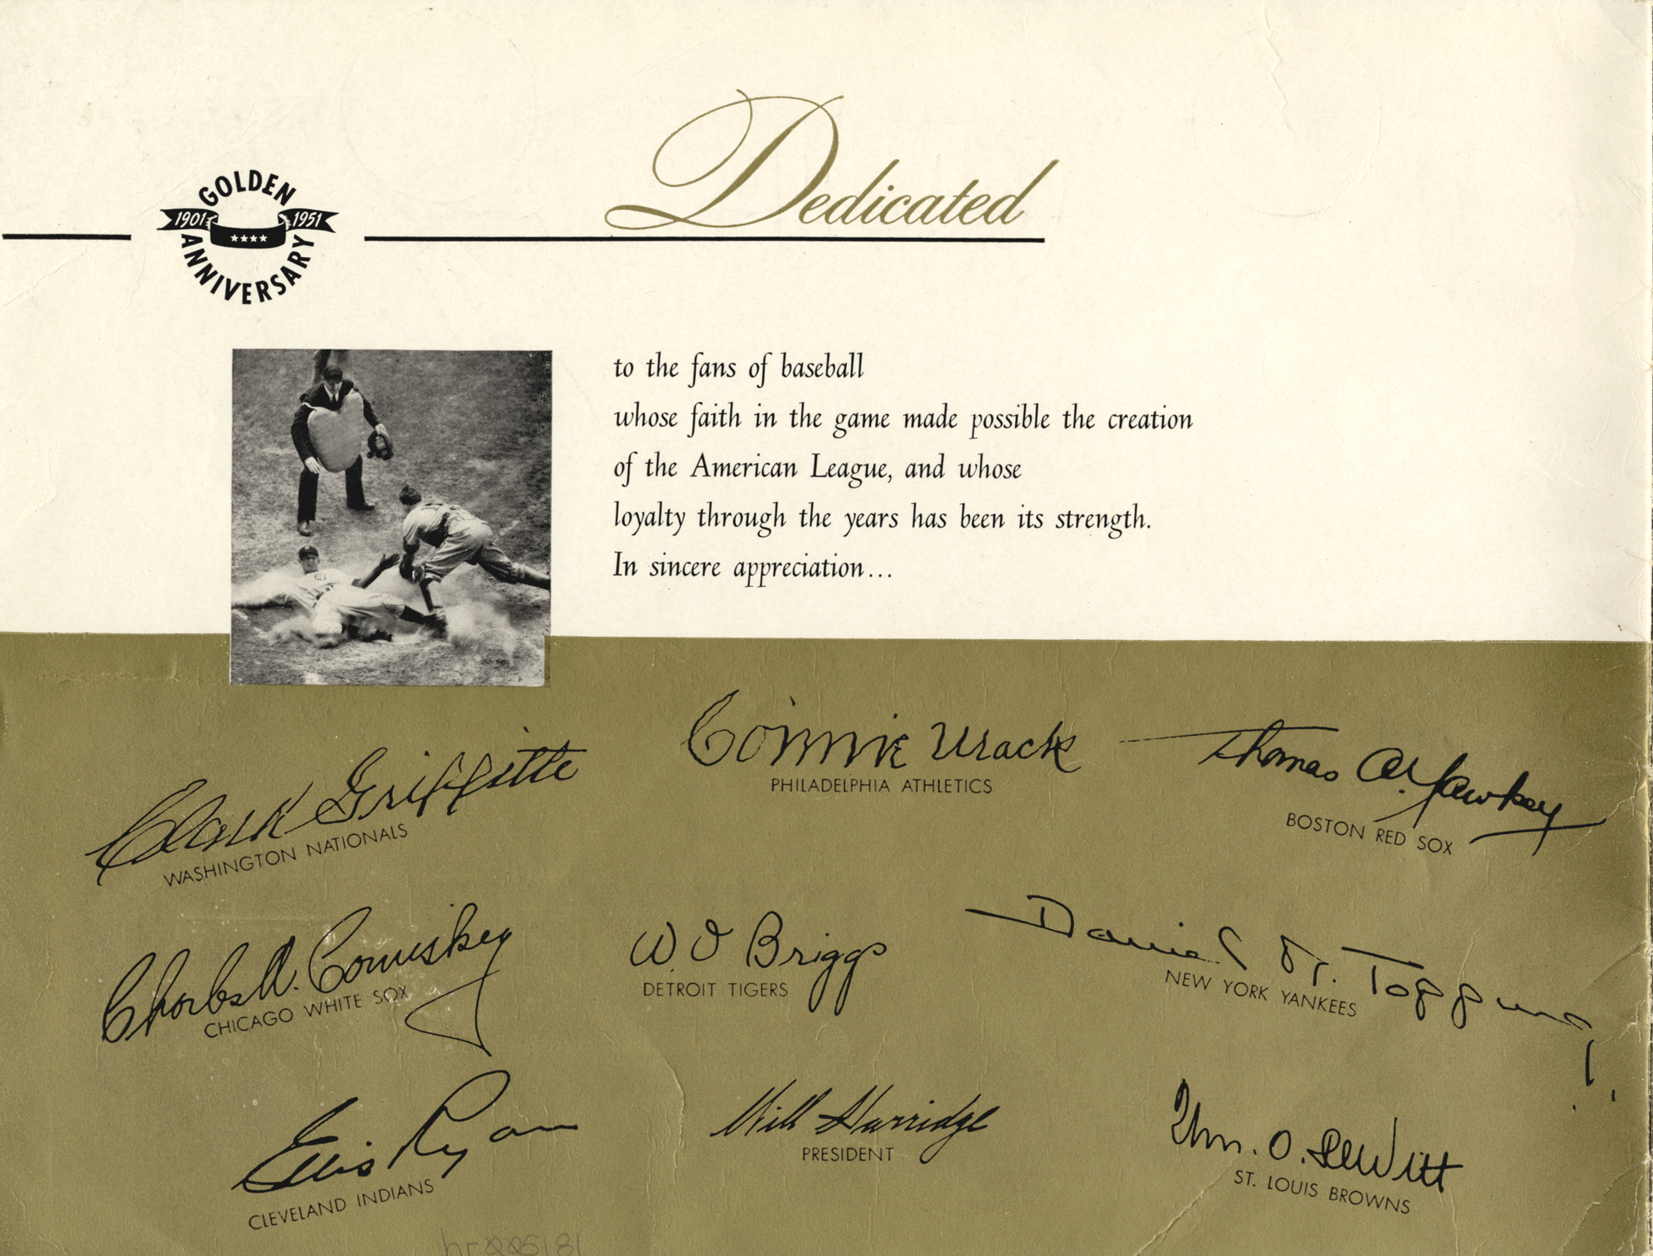 GOLDEN
1901 1951
ANNIVERSARY
Dedicated
to the fans of baseball
whose faith in the game made possible the creation
of the American League, and whose
loyalty through the years has been its strength.
In sincere appreciation...
Clark Griffith
WASHINGTON NATIONALS
Connie Mack
PHILADELPHIA ATHLETICS
Thomas A. Yawkey
BOSTON RED SOX
Charles A. Comiskey
CHICAGO WHITE SOX
W. O Briggs
DETROIT TIGERS
Daniel R. Topping
NEW YORK YANKEES
Ellis Ryan
CLEVELAND INDIANS
Will Harridge
PRESIDENT
Wm. O. DeWitt
ST. LOUIS BROWNS